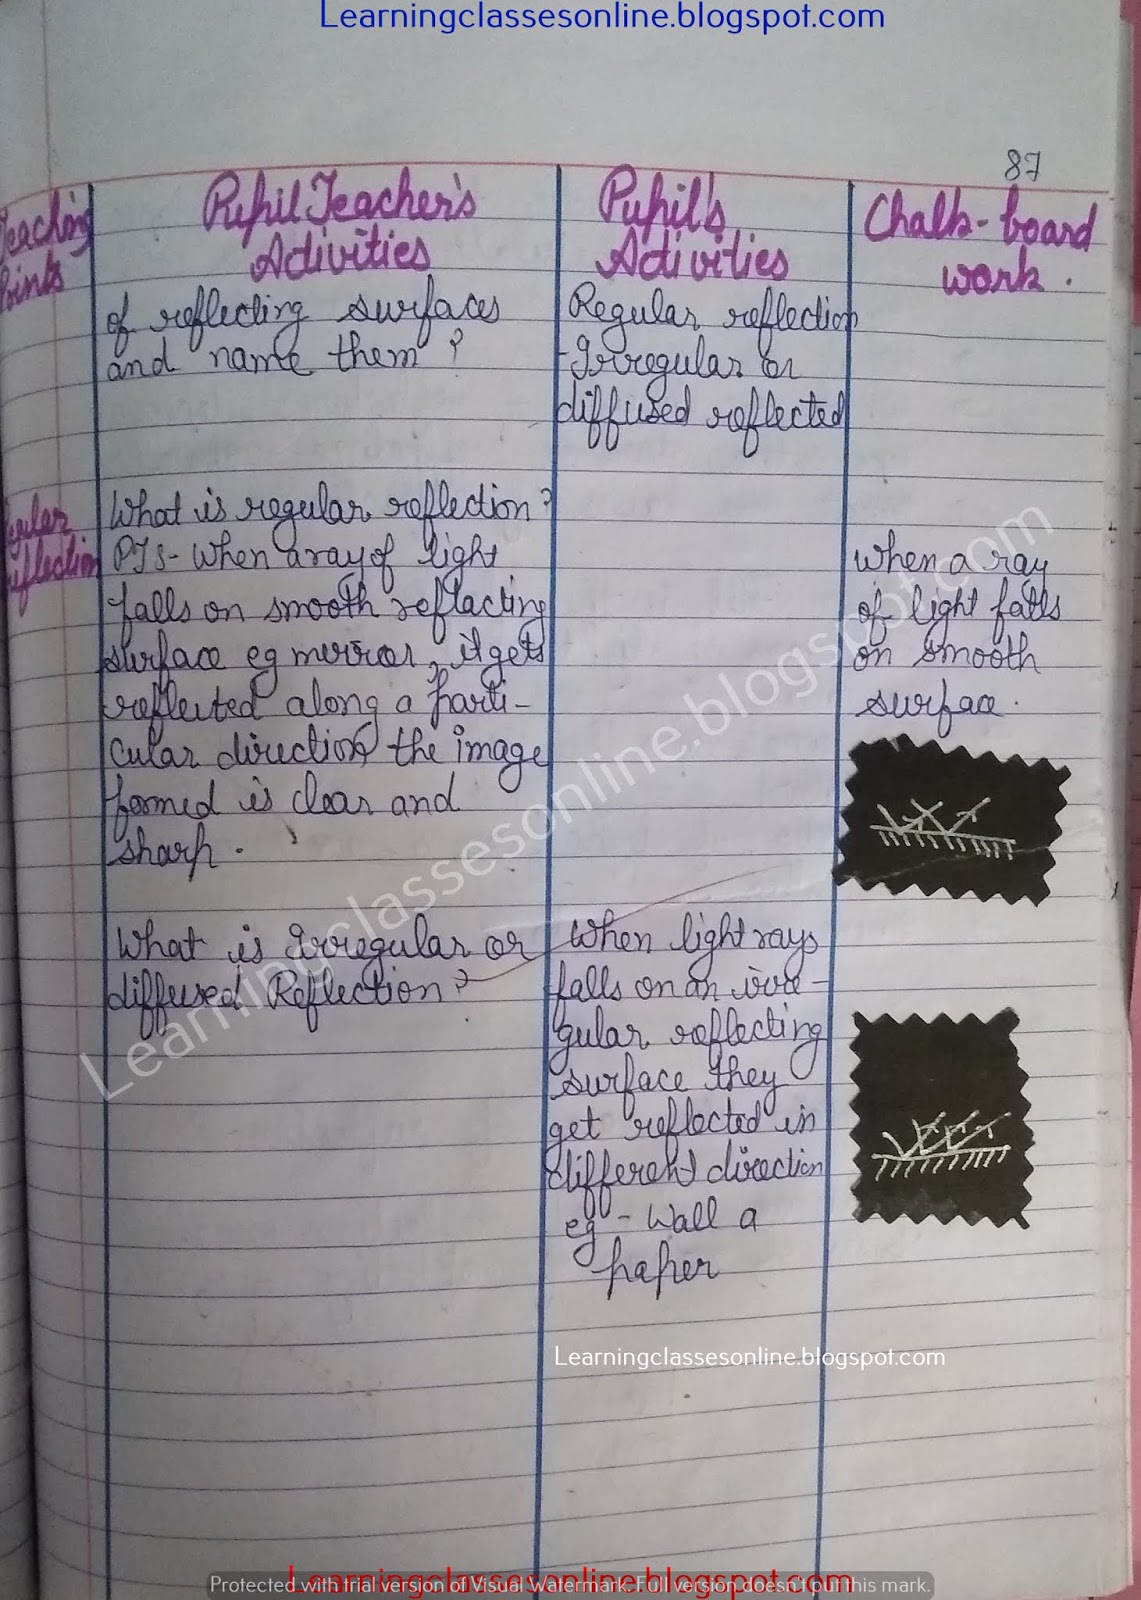 Learningclassesonline.blogspot.com
87
Teaching
Points
Pupil Teacher's
Activities
Pupil's
Activities
Chalk-board
work.
of reflecting surfaces
and name them?
Regular reflection
-Irregular or
diffused reflected
Regular
reflection
What is regular reflection?
PTS- When a ray of light
falls on smooth reflacting
surface eg mirror, it gets
reflected along a parti-
cular direction the image
formed is clear and
sharp.
When a ray
of light falls
on smooth
surface.
What is Irregular or
diffused Reflection?
When light rays
falls on an irre-
gular reflecting
surface they
get reflected in
different direction
eg - Wall a
paper
Learningclassesonline.blogspot.com
Learningclassesonline.blogspot.com
Learningclassesonline.blogspot.com
Protected with trial version of Visual Watermark. Full version doesn't put this mark.